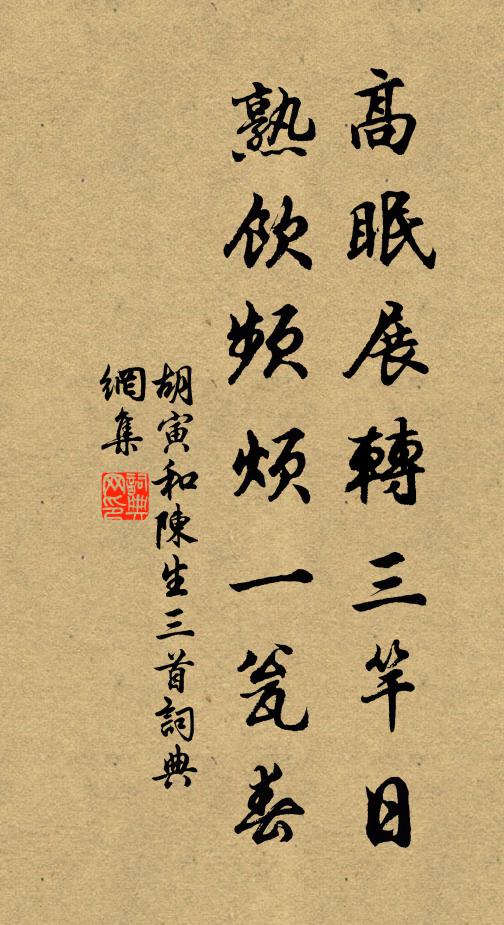 高眠展轉三竿日
熟飲頻煩一瓮春
胡寅和陳生三首詞典
網集
詞典
网印